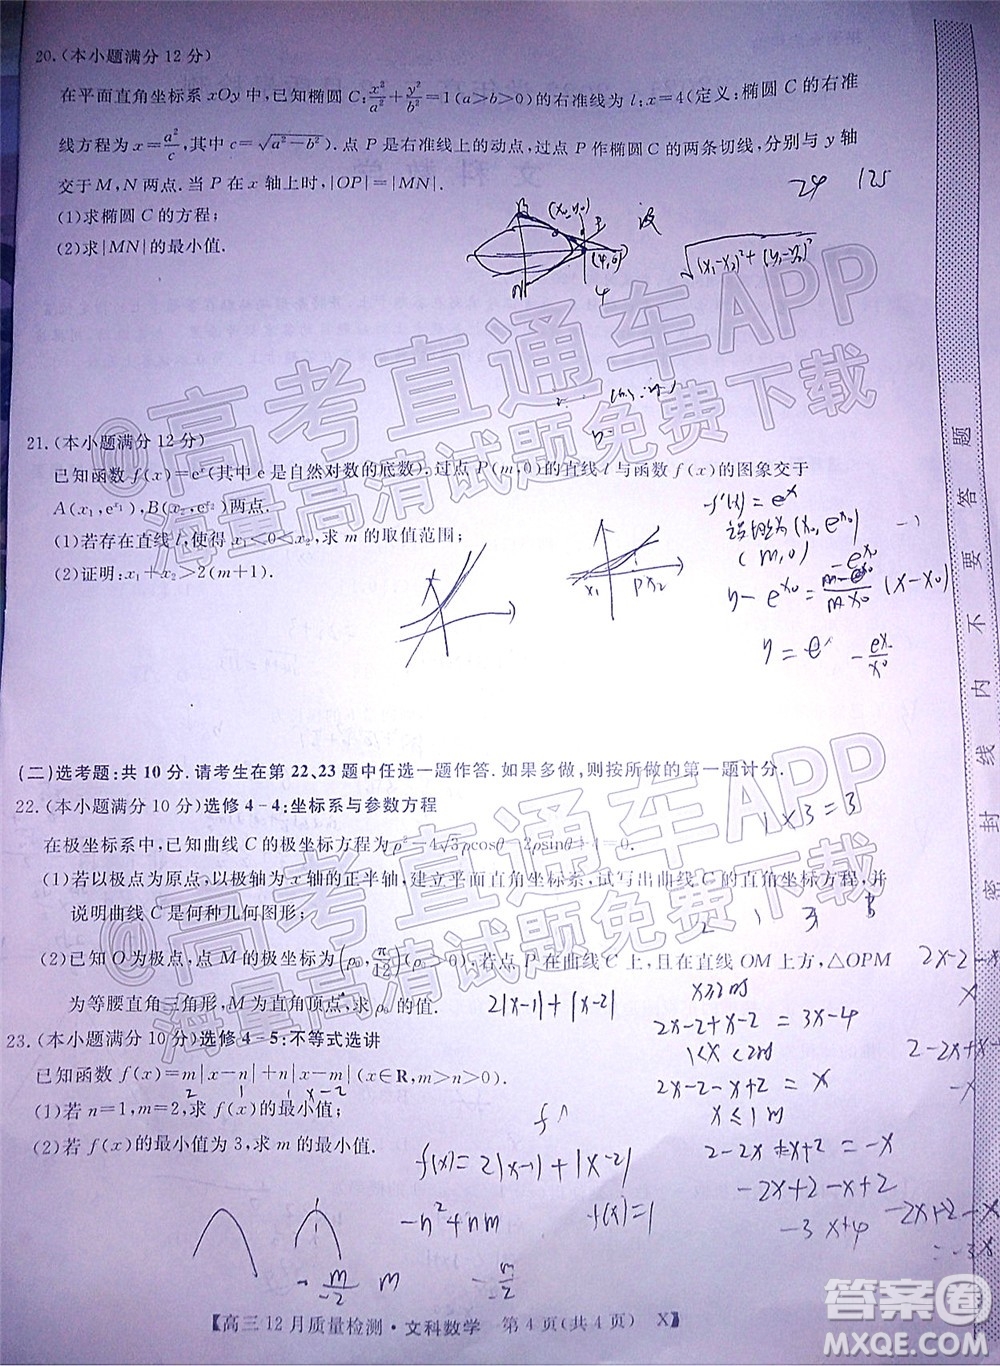 20.(本小题满分 12 分)
在平面直角坐标系 xOy 中,已知椭圆 C:x²/a²+y²/b²=1(a>b>0)的右准线为 l:x=4(定义:椭圆 C 的右准
线方程为 x=a²/c,c=√(a²-b²)).点 P 是右准线上的动点,过点 P 作椭圆 C 的两条切线,分别与 y 轴
交于 M,N 两点.当 P 在 x 轴上时,|OP|=|MN|.
24 125
(1)求椭圆 C 的方程;
(2)求|MN|的最小值.
(x₀,y₀)
设
(4,0)
√((x₁-x₂)²+(y₁-y₂)²)
21.(本小题满分 12 分)
已知函数 f(x)=eˣ(其中 e 是自然对数的底数),过点 P(m,0)的直线 l 与函数 f(x)的图象交于
A(x₁,e^x₁),B(x₂,e^x₂)两点.
(1)若存在直线 l,使得 x₁<0<x₂,求 m 的取值范围;
(2)证明:x₁+x₂>2(m+1).
f'(x)=eˣ
(x₀,e^x₀)
(m,0)
x₁ P x₂
(二)选考题:共 10 分.请考生在第 22、23 题中任选一题作答.如果多做,则按所做的第一题计分.
22.(本小题满分 10 分)选修 4-4:坐标系与参数方程
1×3=3
在极坐标系中,已知曲线 C 的极坐标方程为 ρ²-4√3ρcosθ-2ρsinθ+4=0.
(1)若以极点为原点,以极轴为 x 轴的正半轴,建立平面直角坐标系,试写出曲线 C 的直角坐标方程,并
说明曲线 C 是何种几何图形;
(2)已知 O 为极点,点 M 的极坐标为(ρ₀,π/12),若点 P 在曲线 C 上,且在直线 OM 上方,△OPM
为等腰直角三角形,M 为直角顶点,求 ρ₀ 的值.
2|x-1|+|x-2|
x≥2时
2x-2+x-2=3x-4
1<x<2时
2x-2-x+2=x
x≤1时
23.(本小题满分 10 分)选修 4-5:不等式选讲
已知函数 f(x)=m|x-n|+n|x-m|(x∈R,m>n>0).
(1)若 n=1,m=2,求 f(x)的最小值;
(2)若 f(x)的最小值为 3,求 m 的最小值.
f(x)=2|x-1|+|x-2|
-2x+2-x+2
-3x+4
-n²+nm
f(x)=1
【高三 12 月质量检测·文科数学 第 4 页(共 4 页) X】
密 封 线 内 不 要 答 题
@高考直通车APP
海量高清试题免费下载
@高考直通车APP
海量高清试题免费下载
答案圈
MXQE.COM